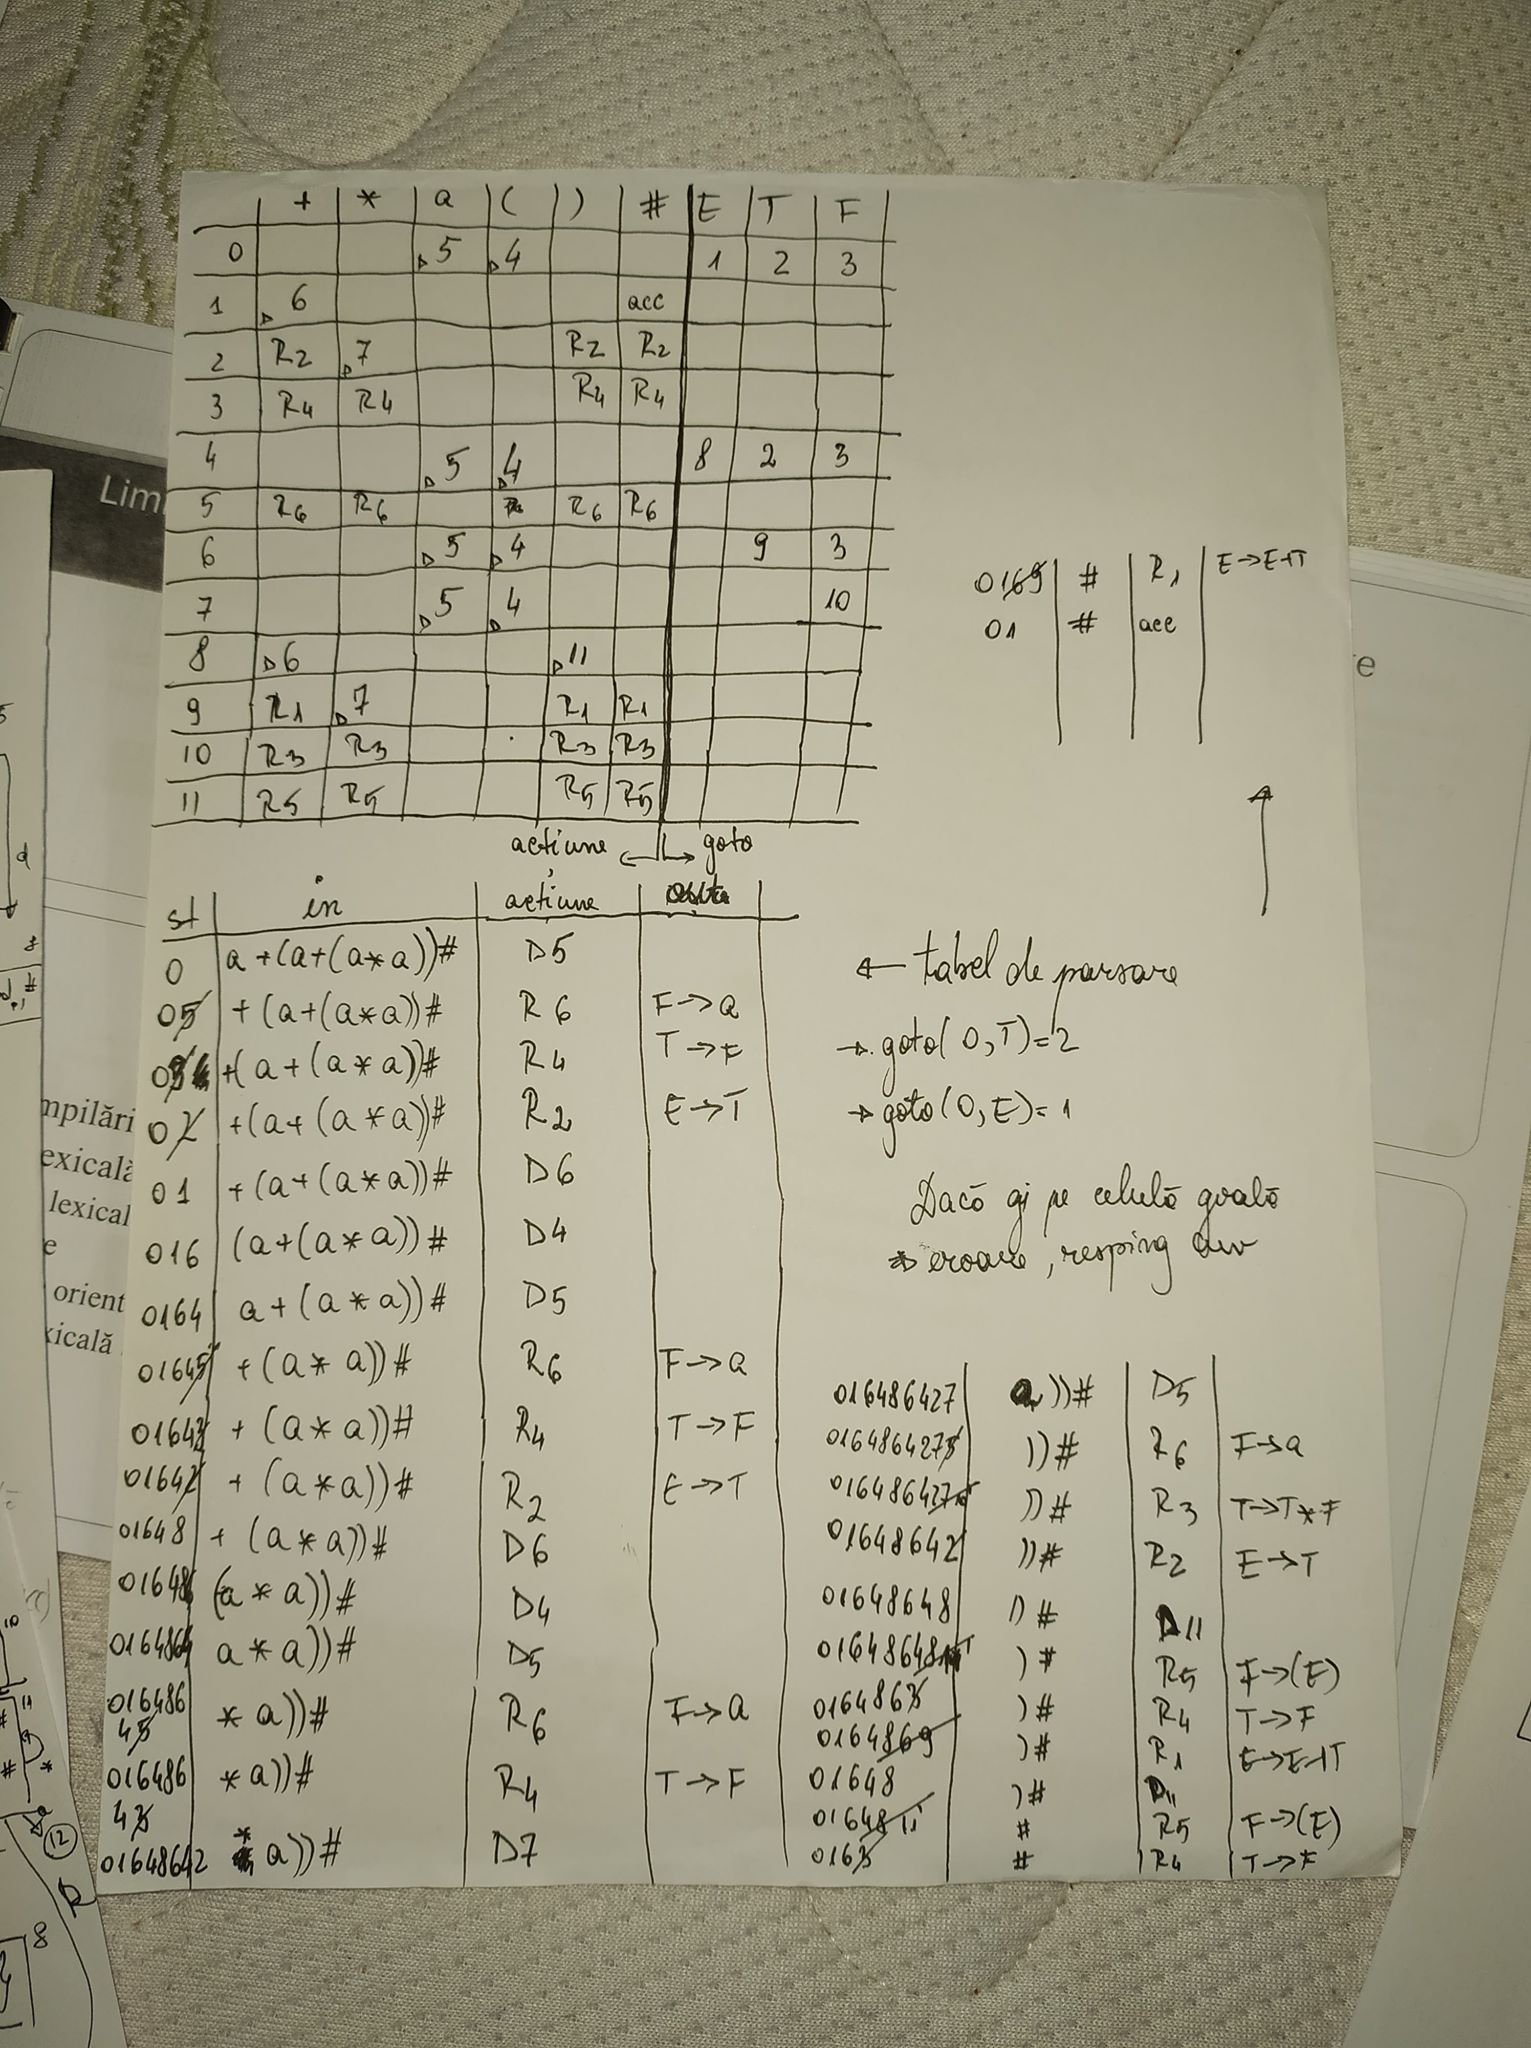 + * a ( ) # E T F
0 D5 D4 1 2 3
1 D6 acc
2 R2 D7 R2 R2
3 R4 R4 R4 R4
4 D5 D4 8 2 3
5 R6 R6 R6 R6
6 D5 D4 9 3
7 D5 D4 10
8 D6 D11
9 R1 D7 R1 R1
10 R3 R3 R3 R3
11 R5 R5 R5 R5
acțiune ← → goto
st in acțiune
0 a+(a+(a*a))# D5
05 +(a+(a*a))# R6 F→a
03 +(a+(a*a))# R4 T→F
02 +(a+(a*a))# R2 E→T
01 +(a+(a*a))# D6
016 (a+(a*a))# D4
0164 a+(a*a))# D5
01645 +(a*a))# R6 F→a
01643 +(a*a))# R4 T→F
01642 +(a*a))# R2 E→T
01648 +(a*a))# D6
016486 (a*a))# D4
0164864 a*a))# D5
016486
45 *a))# R6 F→a
016486
43 *a))# R4 T→F
01648642 *a))# D7
← tabel de parsare
→ goto(0,T)=2
→ goto(0,E)=1
Dacă aj pe celulă goală
⇒ eroare, resping cuv
016486427 a))# D5
0164864275 ))# R6 F→a
01648642710 ))# R3 T→T*F
01648642 ))# R2 E→T
01648648 ))# D11
0164864811 )# R5 F→(E)
0164863 )# R4 T→F
0164869 )# R1 E→E+T
01648 )# D11
0164811 # R5 F→(E)
0163 # R4 T→F
0169 # R1 E→E+T
01 # acc
Lim
mpilări
exicală
lexical
e
orient
xicală
e
d
8
10
11
#
*
12
R
8